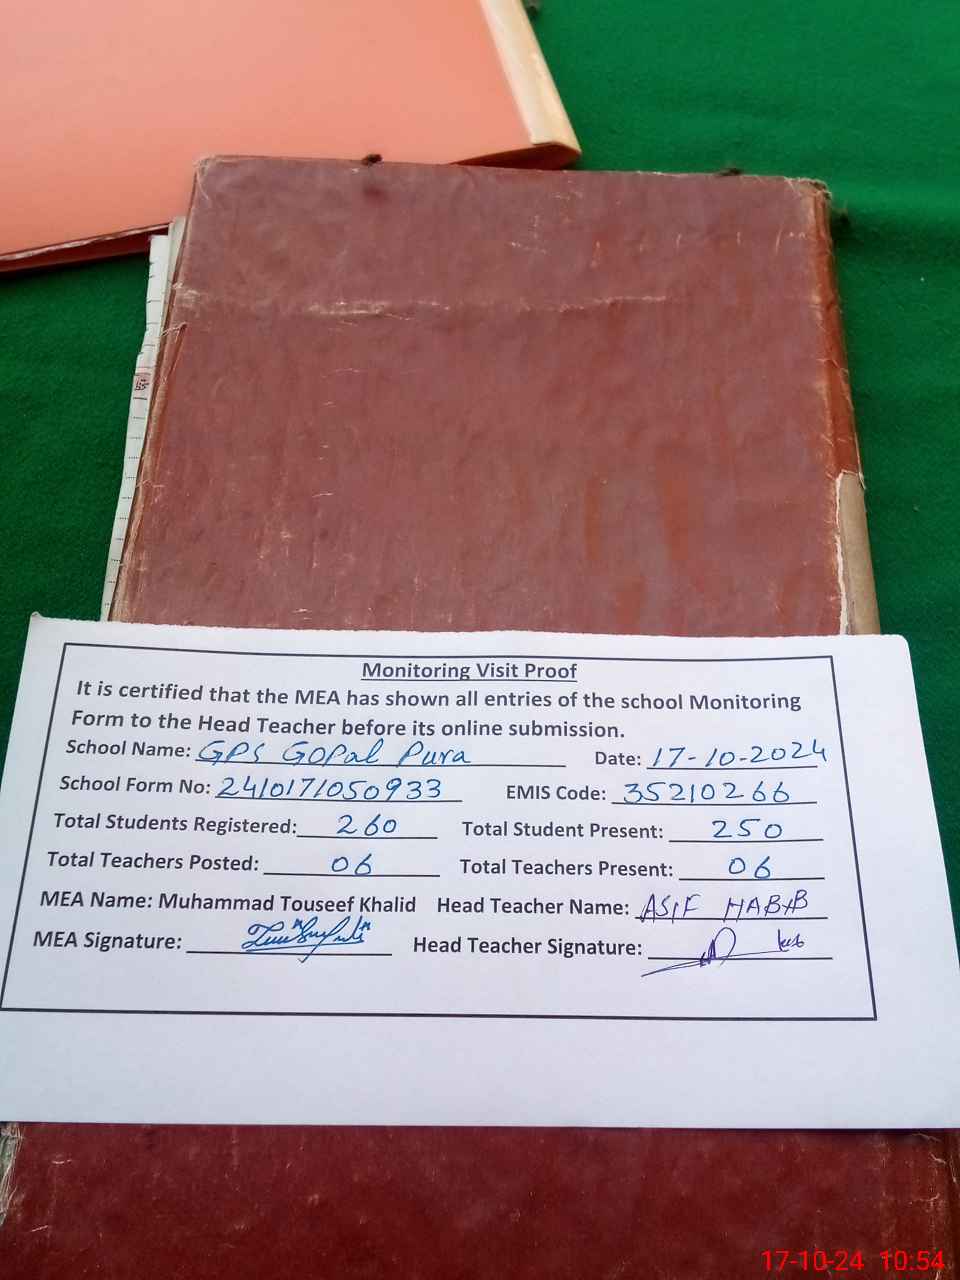 Monitoring Visit Proof
It is certified that the MEA has shown all entries of the school Monitoring
Form to the Head Teacher before its online submission.
School Name: GPS GOPal Pura Date: 17-10-2024
School Form No: 2410171050933 EMIS Code: 35210266
Total Students Registered: 260 Total Student Present: 250
Total Teachers Posted: 06 Total Teachers Present: 06
MEA Name: Muhammad Touseef Khalid Head Teacher Name: ASIF HABIB
MEA Signature: Head Teacher Signature:
17-10-24 10:54